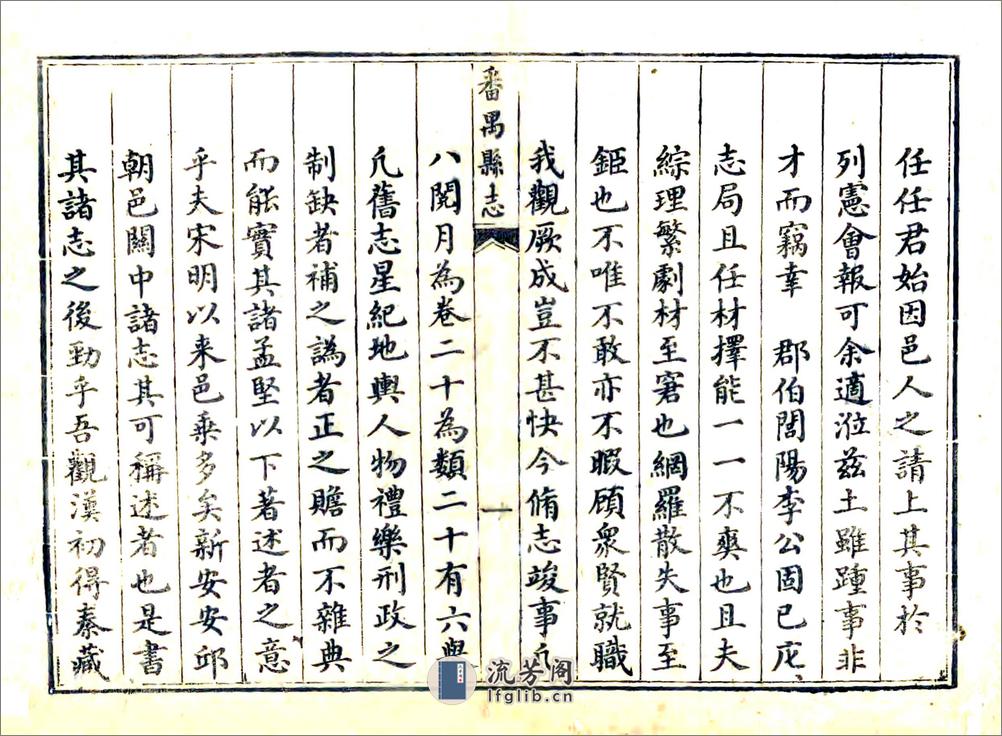 任任君始因邑人之請上其事於
列憲會報可余適涖兹土雖踵事非
才而竊幸 郡伯閤陽李公固已庀
志局且任材擇能一一不爽也且夫
綜理繁劇材至窘也網羅散失事至
鉅也不唯不敢亦不暇顧衆賢就職
我觀厥成豈不甚快今脩志竣事凢
番禺縣志
十一
八閱月為卷二十為類二十有六舉
凢舊志星紀地輿人物禮樂刑政之
制缺者補之譌者正之贍而不雜典
而能實其諸孟堅以下著述者之意
乎夫宋明以来邑乗多矣新安安邱
朝邑關中諸志其可稱述者也是書
其諸志之後勁乎吾觀漢初得秦藏
流芳阁
lfglib.cn